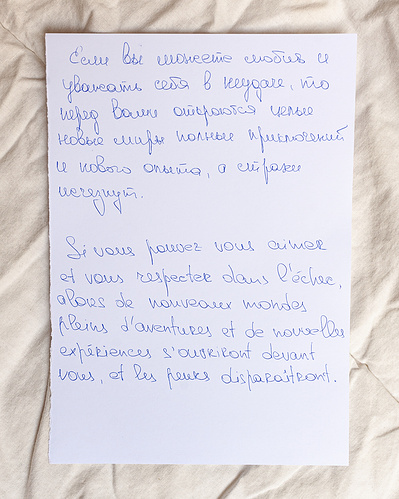 Если вы можете любить и
уважать себя в неудаче, то
перед вами откроются целые
новые миры полные приключений
и нового опыта, а страхи
исчезнут.
Si vous pouvez vous aimer
et vous respecter dans l'échec,
alors de nouveaux mondes
pleins d'aventures et de nouvelles
expériences s'ouvriront devant
vous, et les peurs disparaîtront.